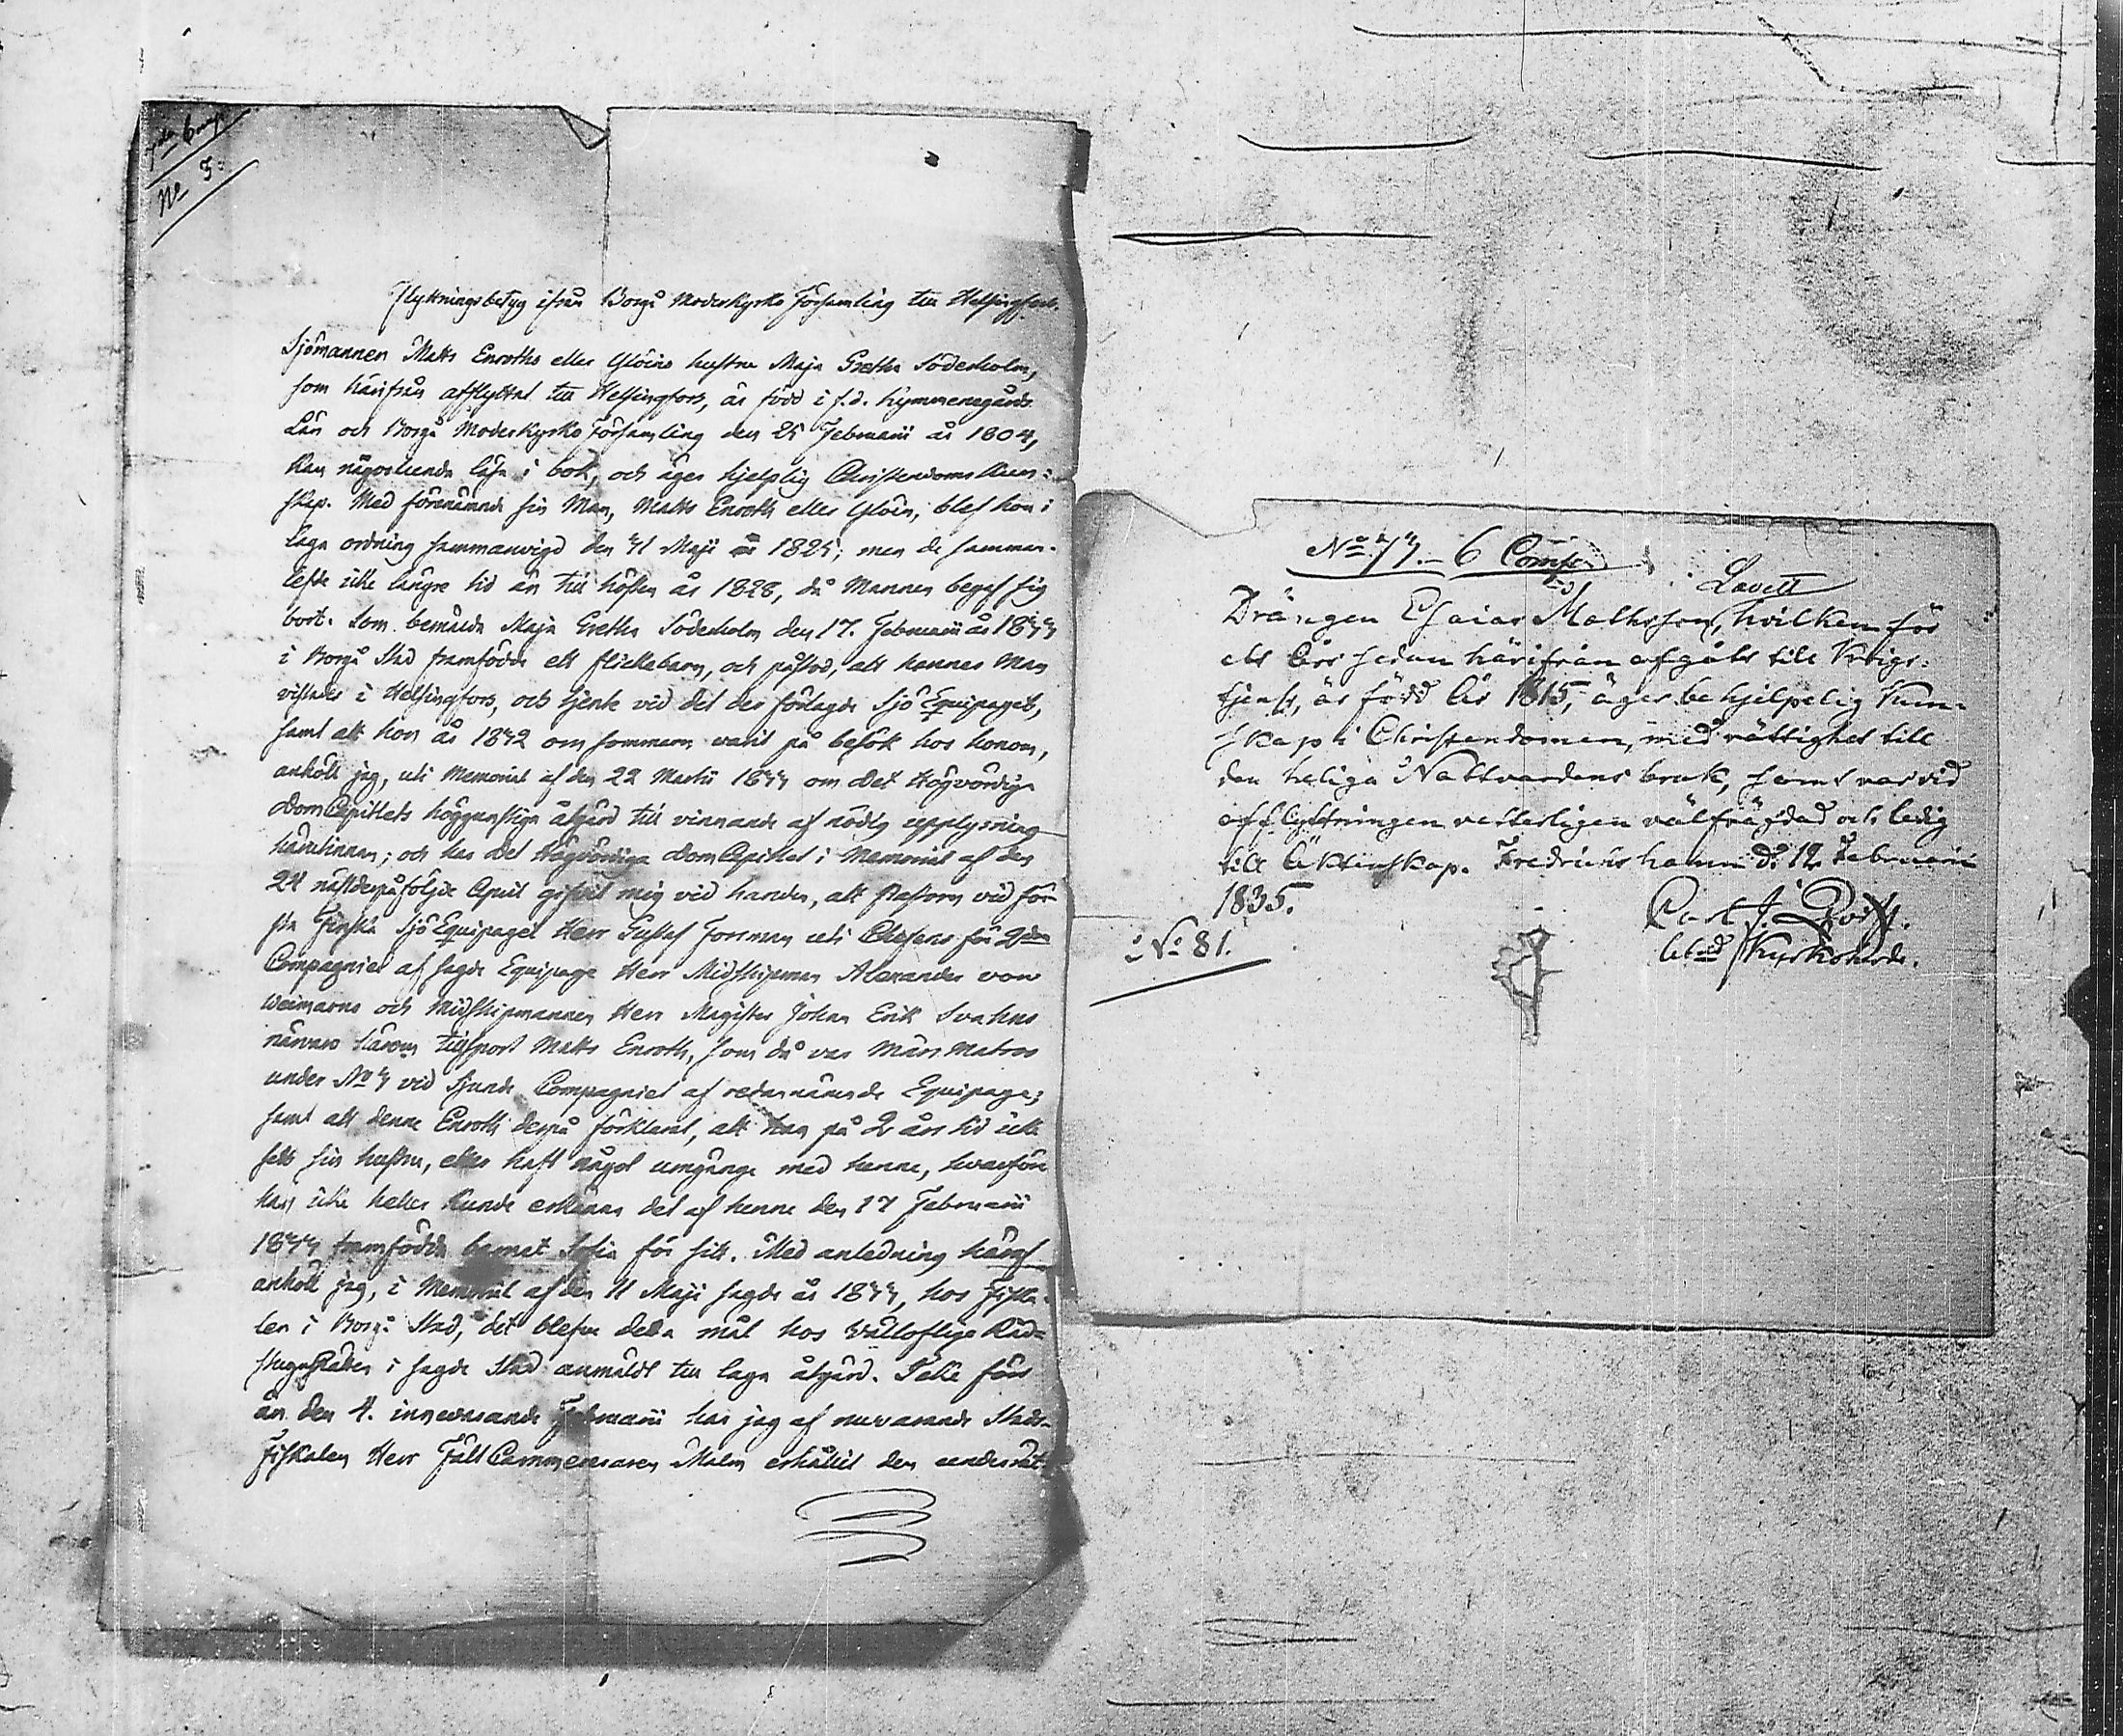 No 5:
Flyttningsbetyg ifrån Borgå Moderkyrko Församling till Helsingfors.
Sjömannen Matts Enroths eller Glöins hustru Maja Greta Söderholm,
som härifrån afflyttat till Helsingfors, är född i f.d. Kymmenegårds
Län och Borgå Moderkyrko Församling den 25 Februarii år 1804,
kan någorlunda läsa i bok, och äger hjelplig Christendoms Kun-
skap. Med förenämnde sin Man, Matts Enroth eller Glöin, blef hon i
laga ordning sammanvigd den 31 Maji år 1825; men de samman-
lefde icke längre tid än till hösten år 1828, då Mannen begaf sig
bort. Som bemälda Maja Greta Söderholm den 17. Februarii år 1833
i Borgå Stad framfödde ett flickebarn, och påstod, att hennes Man
vistades i Helsingfors, och tjente vid det der förlagde Sjö Equipaget,
samt att hon år 1832 om sommarn varit på besök hos honom,
anhöll jag, uti Memorial af den 22 Martii 1833 om Det Högvördiga
DomCapitlets höggunstiga åtgärd till vinnande af nödig upplysning
härutinnan; och har Det Högvördiga DomCapitlet i Memorial af den
24 nästderpåföljde April gifvit mig vid handen, att Pastorn vid För-
sta Finska Sjö Equipaget Herr Gustaf Forsman uti Chefens för 2dra
Compagniet af sagde Equipage Herr Midshipman Alexander von
Weimarns och Midshipmannen Herr Magister Johan Erik Svahns
närvaro härom tillsport Matts Enroth, som då var Märs Matros
under No 3 vid Sjunde Compagniet af redannämnde Equipage;
samt att denne Enroth derpå förklarat, att han på 2 års tid icke
sett sin hustru, eller haft något umgänge med henne, hvarföre
han icke heller kunde erkänna det af henne den 17 Februarii
1833 framfödda barnet Sofia för sitt. Med anledning häraf
anhöll jag, i Memorial af den 11 Maji sagde år 1833, hos Fiska-
len i Borgå Stad, det blefve detta mål hos Vällofliga Råd-
stuguRätten i sagde Stad anmäldt till laga åtgärd. Icke förr
än den 4. innevarande Februarii har jag af nuvarande Stads-
Fiskalen Herr Fält Cammereraren Malm erhållit den underrät-
No 73. – 6 Comp.
Lavett
Drängen Esaias Mathsson, hvilken för
ett års sedan härifrån afgått till Krigs-
tjenst, är född år 1815, äger behjelpelig kun-
skap i Christendomen, med rättighet till
den heliga Nattvardens bruk, samt var vid
afflyttningen vetterligen välfrägdad och ledig
till Äktenskap. Fredrichshamn d. 12 Februarii
1835.
No 81.